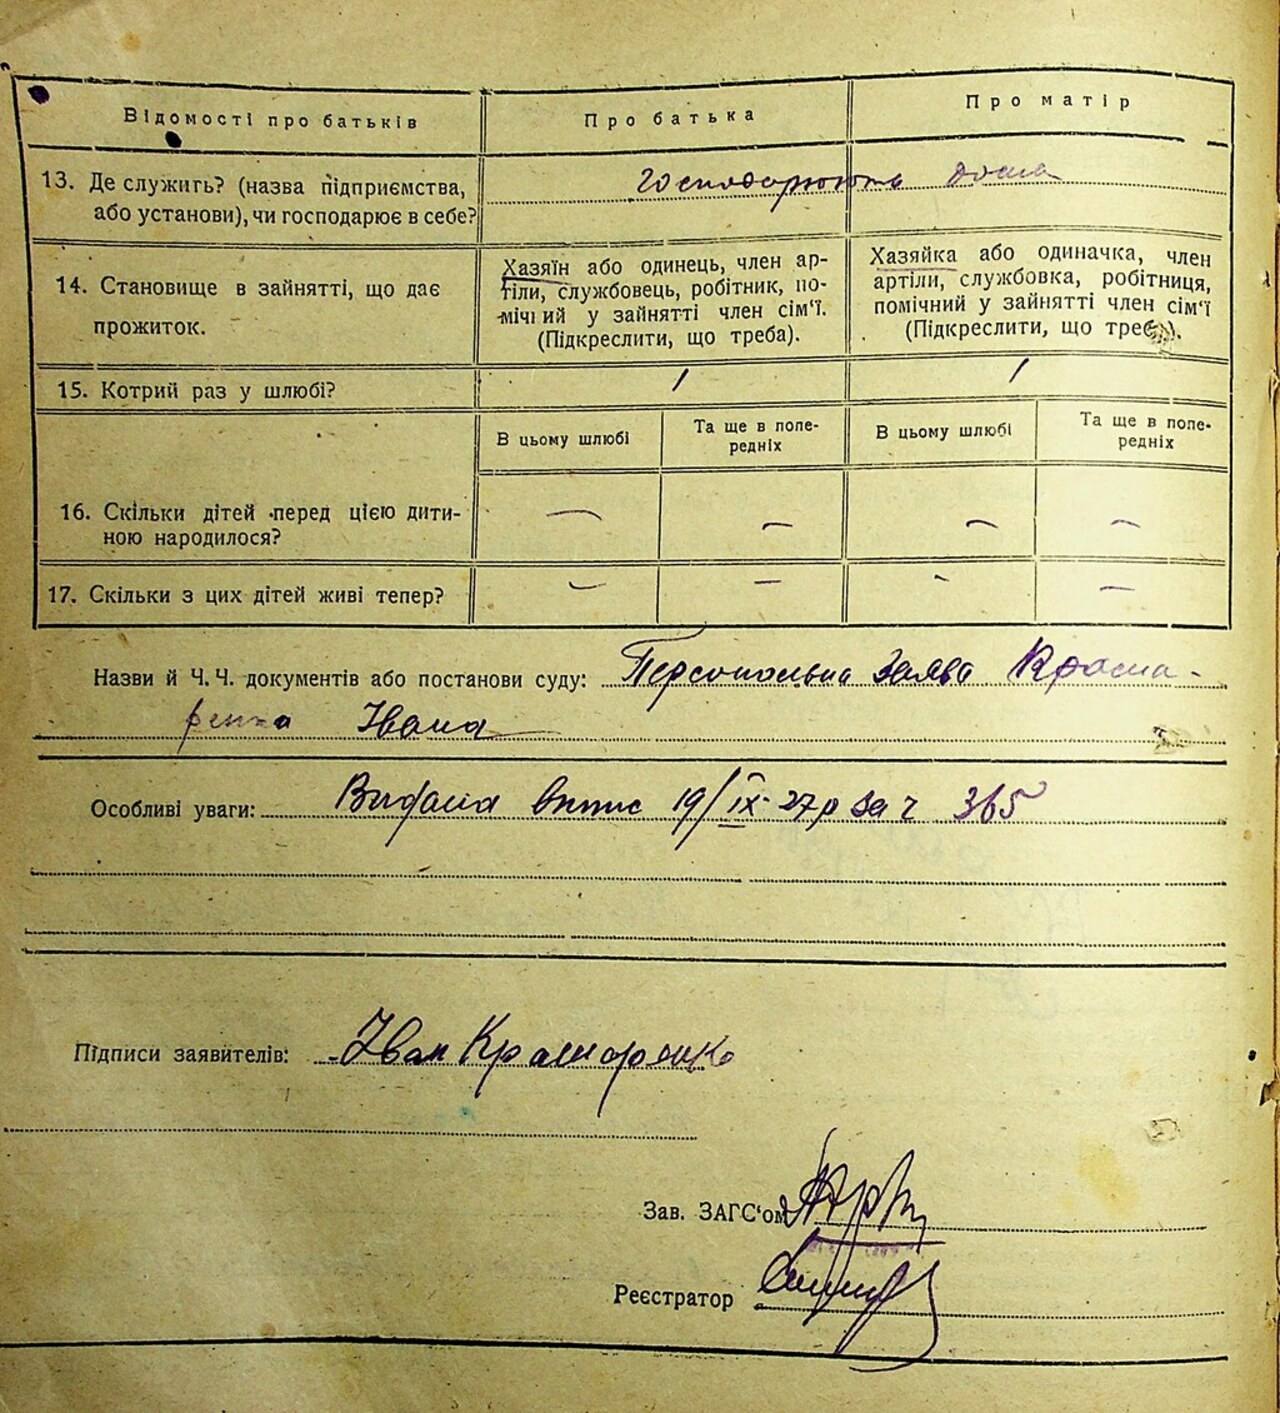 Відомості про батьків
Про батька
Про матір
13. Де служить? (назва підприємства,
або установи), чи господарює в себе?
Господарюють дома
14. Становище в зайнятті, що дає
прожиток.
Хазяїн або одинець, член ар-
тіли, службовець, робітник, по-
мічний у зайнятті член сім'ї.
(Підкреслити, що треба).
Хазяйка або одиначка, член
артіли, службовка, робітниця,
помічний у зайнятті член сім'ї
(Підкреслити, що треба).
15. Котрий раз у шлюбі?
1
1
В цьому шлюбі
Та ще в попе-
редніх
В цьому шлюбі
Та ще в попе-
редніх
16. Скільки дітей перед цією дити-
ною народилося?
— — — —
17. Скільки з цих дітей живі тепер?
— — — —
Назви й Ч. Ч. документів або постанови суду: Персональна заява Крама-
ренка Івана
Особливі уваги: Видана випис 19/IX-27р за ч 365
Підписи заявителів: Іван Крамаренко
Зав. ЗАГС'ом
Реєстратор